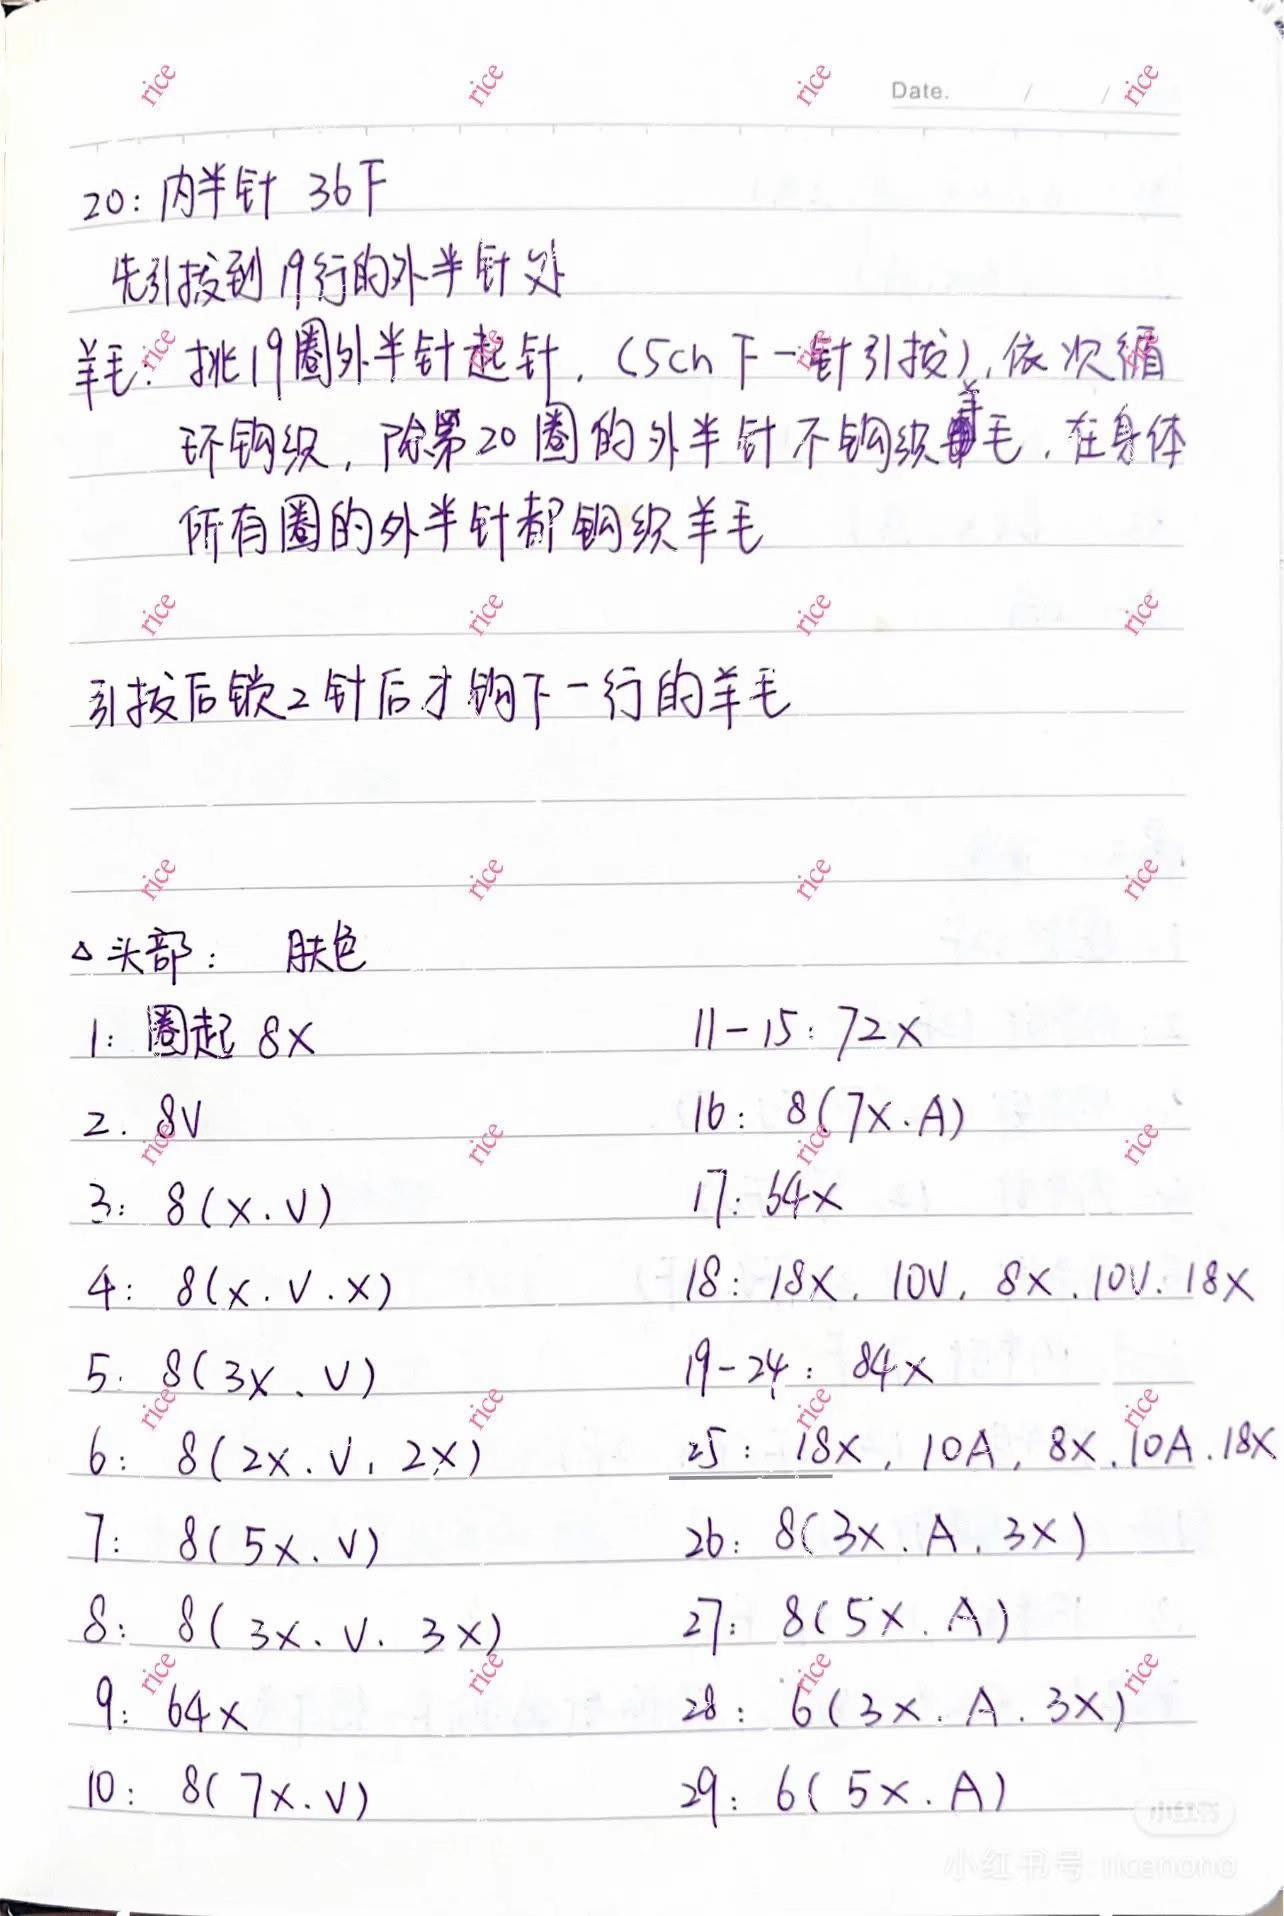 Date. / /
20: 内半针 36下
先引拔到19行的外半针处
羊毛: 挑19圈外半针起针, (5ch下一针引拔), 依次循
环钩织, 除第20圈的外半针不钩织羊毛, 在身体
所有圈的外半针都钩织羊毛
引拔后锁2针后才钩下一行的羊毛
△头部: 肤色
1: 圈起 8X
2. 8V
3: 8(X.V)
4: 8(X.V.X)
5: 8(3X、V)
6: 8(2X.V, 2X)
7: 8(5X.V)
8: 8(3X.V.3X)
9: 64X
10: 8(7X.V)
11-15: 72X
16: 8(7X.A)
17: 64X
18: 18X, 10V, 8X, 10V. 18X
19-24: 84X
25: 18X, 10A, 8X, 10A. 18X
26: 8(3X.A.3X)
27: 8(5X.A)
28: 6(3X.A.3X)
29: 6(5X.A)
rice rice rice rice
rice rice rice rice
rice rice rice rice
rice rice rice rice
rice rice rice rice
rice rice rice rice
rice rice rice rice
小红书
小红书号: ricenono